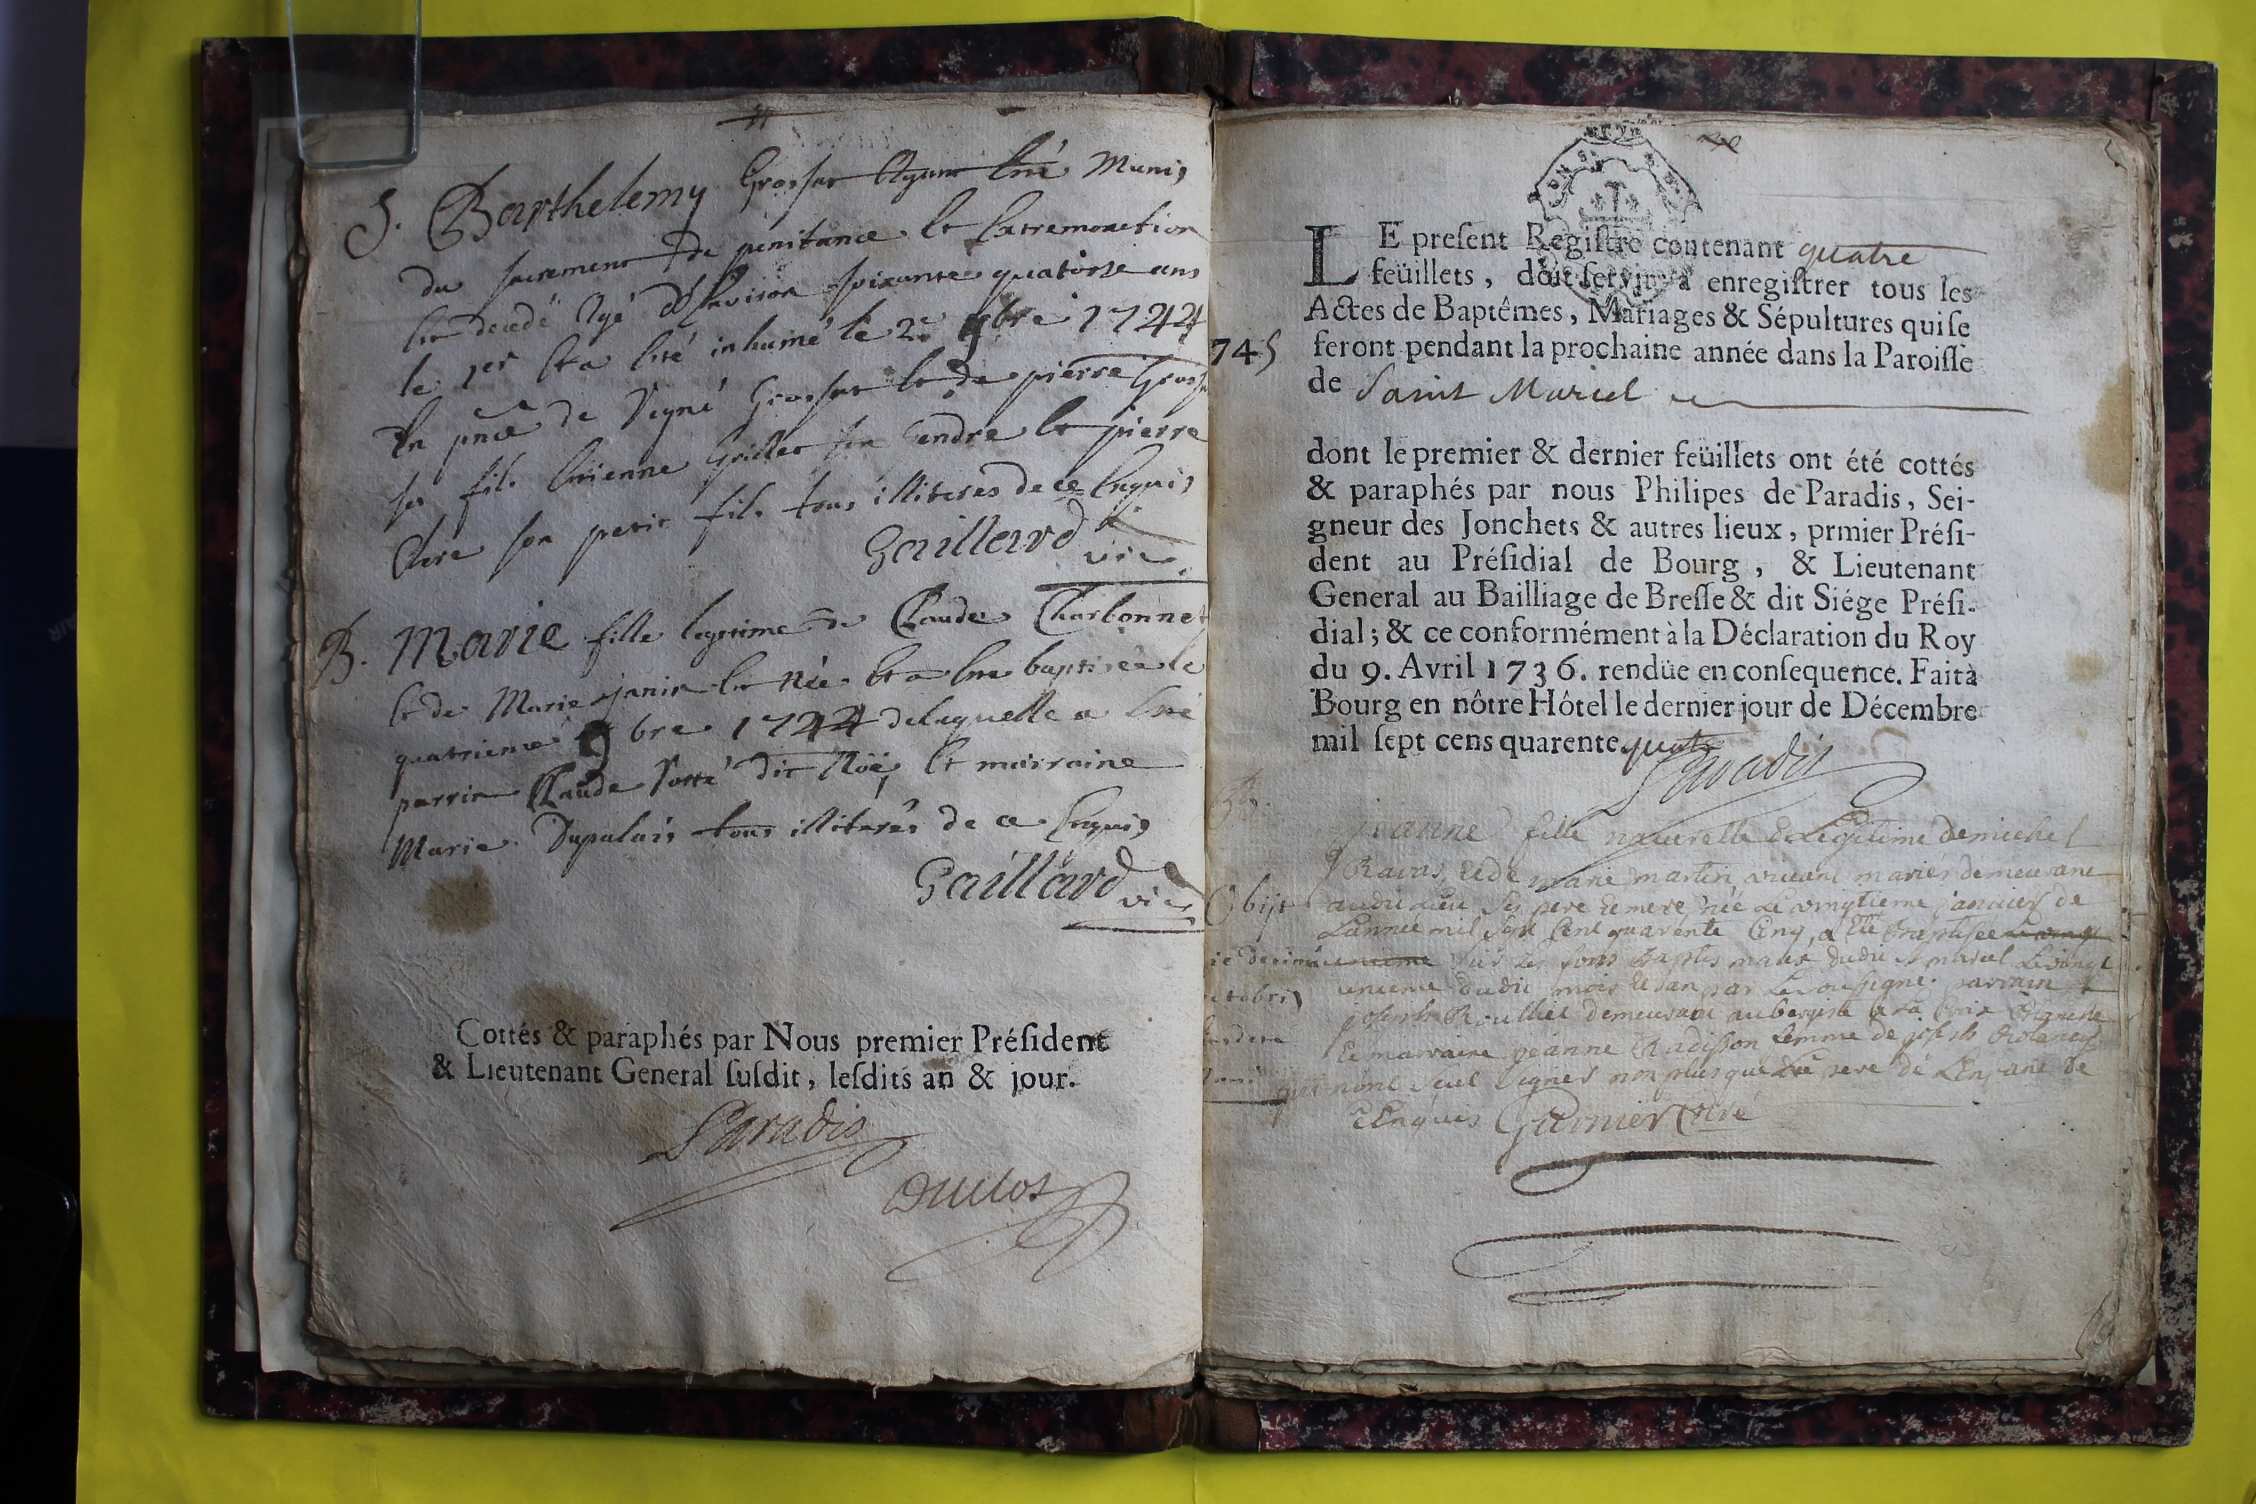 S. Barthelemy Grosset Ayant Eté Munis
du sacrement de penitance et Extremonction
Est decedé Agé d'Environ soixante quatorse ans
le 1er Et a Eté inhumé le 2e 9bre 1744
En pnce de Grosset et de pierre
fils Etienne Grillet son Gendre Et pierre
son petit fils tous illiteres de ce Enquis
Gaillard vic.
B. Marie fille legitime de Claude Charbonnet
Et de Marie janin Est Née Et a Eté baptisée le
quatrieme 9bre 1744 de laquelle a Eté
parrin Claude dit Noë, Et marraine
Marie Dupalais tous illiterés de ce Enquis
Gaillard vic.
Cottés & paraphés par Nous premier Préſident
& Lieutenant General ſuſdit, leſdits an & jour.
Paradis
Duclos
LE preſent Regiſtre contenant quatre
feüillets, doit ſervir à enregiſtrer tous les
Actes de Baptêmes, Mariages & Sépultures qui ſe
745 feront pendant la prochaine année dans la Paroiſſe
de Saint Marcel
dont le premier & dernier feüillets ont été cottés
& paraphés par nous Philipes de Paradis, Sei-
gneur des Jonchets & autres lieux, prmier Préſi-
dent au Préſidial de Bourg, & Lieutenant
General au Bailliage de Breſſe & dit Siége Préſi-
dial; & ce conformément à la Déclaration du Roy
du 9. Avril 1736. rendüe en conſequence. Fait à
Bourg en nôtre Hôtel le dernier jour de Décembre
mil ſept cens quarente quatre
Paradis
B.
jeanne fille naturelle & Legitime de michel
Ravas et de marie martin vivant mariés demeurant
Obijt audit Lieu ses pere et mere née Le vingtieme janvier de
Lannée mil sept Cent quarente Cinq, a été Baptisée
sur les fons Baptismaux dudit st marcel Le vingt
octobris unieme dudit mois et an par Le soussigné. parrain
joseph Roullet demeurant aubergiste a la Croix Blanche
Et marraine jeanne Radisson femme de joseph
qui nont sceu signer non plus que Le pere de L'Enfant de
ce Enquis Garnier Curé